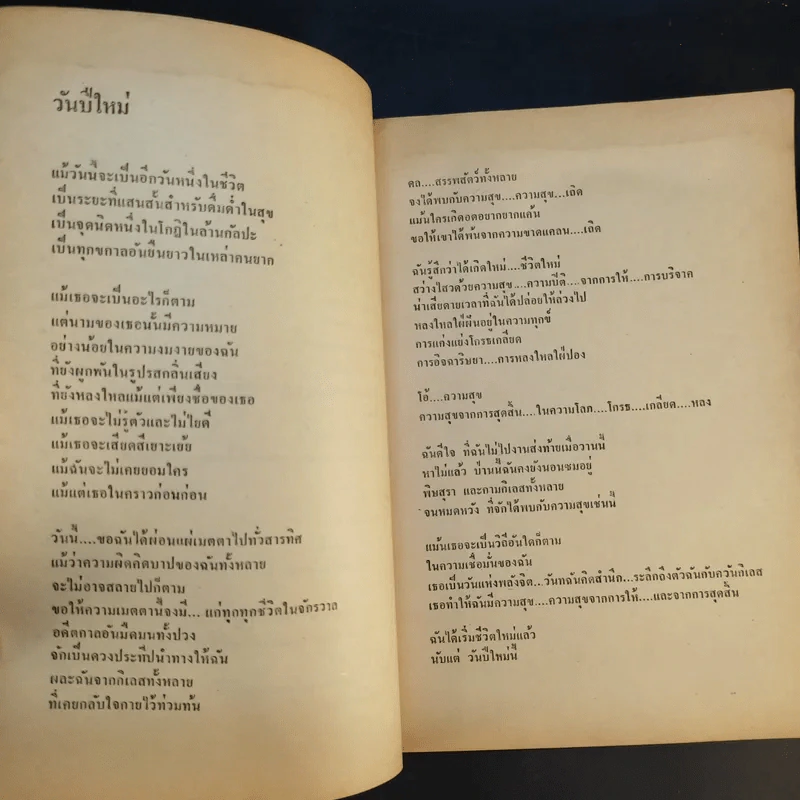 วันปีใหม่
แม้วันนี้จะเป็นอีกวันหนึ่งในชีวิต
เป็นระยะที่แสนสั้นสำหรับดื่มด่ำในสุข
เป็นจุดนิดหนึ่งในโกฏิในล้านกัลปะ
เป็นทุกขกาลอันยืนยาวในเหล่าคนยาก
แม้เธอจะเป็นอะไรก็ตาม
แต่นามของเธอนั้นมีความหมาย
อย่างน้อยในความงมงายของฉัน
ที่ยังผูกพันในรูปรสกลิ่นเสียง
ที่ยังหลงใหลแม้แต่เพียงชื่อของเธอ
แม้เธอจะไม่รู้ตัวและไม่ไยดี
แม้เธอจะเสียดสีเยาะเย้ย
แม้ฉันจะไม่เคยยอมใคร
แม้แต่เธอในคราวก่อนก่อน
วันนี้....ขอฉันได้ผ่อนแผ่เมตตาไปทั่วสารทิศ
แม้ว่าความผิดคิดบาปของฉันทั้งหลาย
จะไม่อาจสลายไปก็ตาม
ขอให้ความเมตตานี้จงมี... แก่ทุกทุกชีวิตในจักรวาล
อดีตกาลอันมืดมนทั้งปวง
จักเป็นดวงประทีปนำทางให้ฉัน
ผละฉันจากกิเลสทั้งหลาย
ที่เคยกลับใจกายไว้ท่วมท้น
ดล....สรรพสัตว์ทั้งหลาย
จงได้พบกับความสุข....ความสุข...เถิด
แม้นใครเกิดอดอยากยากแค้น
ขอให้เขาได้พ้นจากความขาดแคลน....เถิด
ฉันรู้สึกว่าได้เกิดใหม่....ชีวิตใหม่
สว่างไสวด้วยความสุข....ความปีติ....จากการให้....การบริจาค
น่าเสียดายเวลาที่ฉันได้ปล่อยให้ล่วงไป
หลงใหลใฝ่ฝันอยู่ในความทุกข์
การแก่งแย่งโกรธเกลียด
การอิจฉาริษยา....การหลงใหลใฝ่ปอง
โอ้....ความสุข
ความสุขจากการสุดสิ้น....ในความโลภ....โกรธ....เกลียด....หลง
ฉันดีใจ ที่ฉันไม่ไปงานส่งท้ายเมื่อวานนี้
หาไม่แล้ว ป่านนี้ฉันคงยังนอนซมอยู่
พิษสุรา และกามกิเลสทั้งหลาย
จนหมดหวัง ที่จักได้พบกับความสุขเช่นนี้
แม้นเธอจะเป็นวิถีอันใดก็ตาม
ในความเชื่อมั่นของฉัน
เธอเป็นวันแห่งพลังจิต...วันที่ฉันคิดสำนึก...ระลึกถึงตัวฉันกับควันกิเลส
เธอทำให้ฉันมีความสุข....ความสุขจากการให้....และจากการสุดสิ้น
ฉันได้เริ่มชีวิตใหม่แล้ว
นับแต่ วันปีใหม่นี้